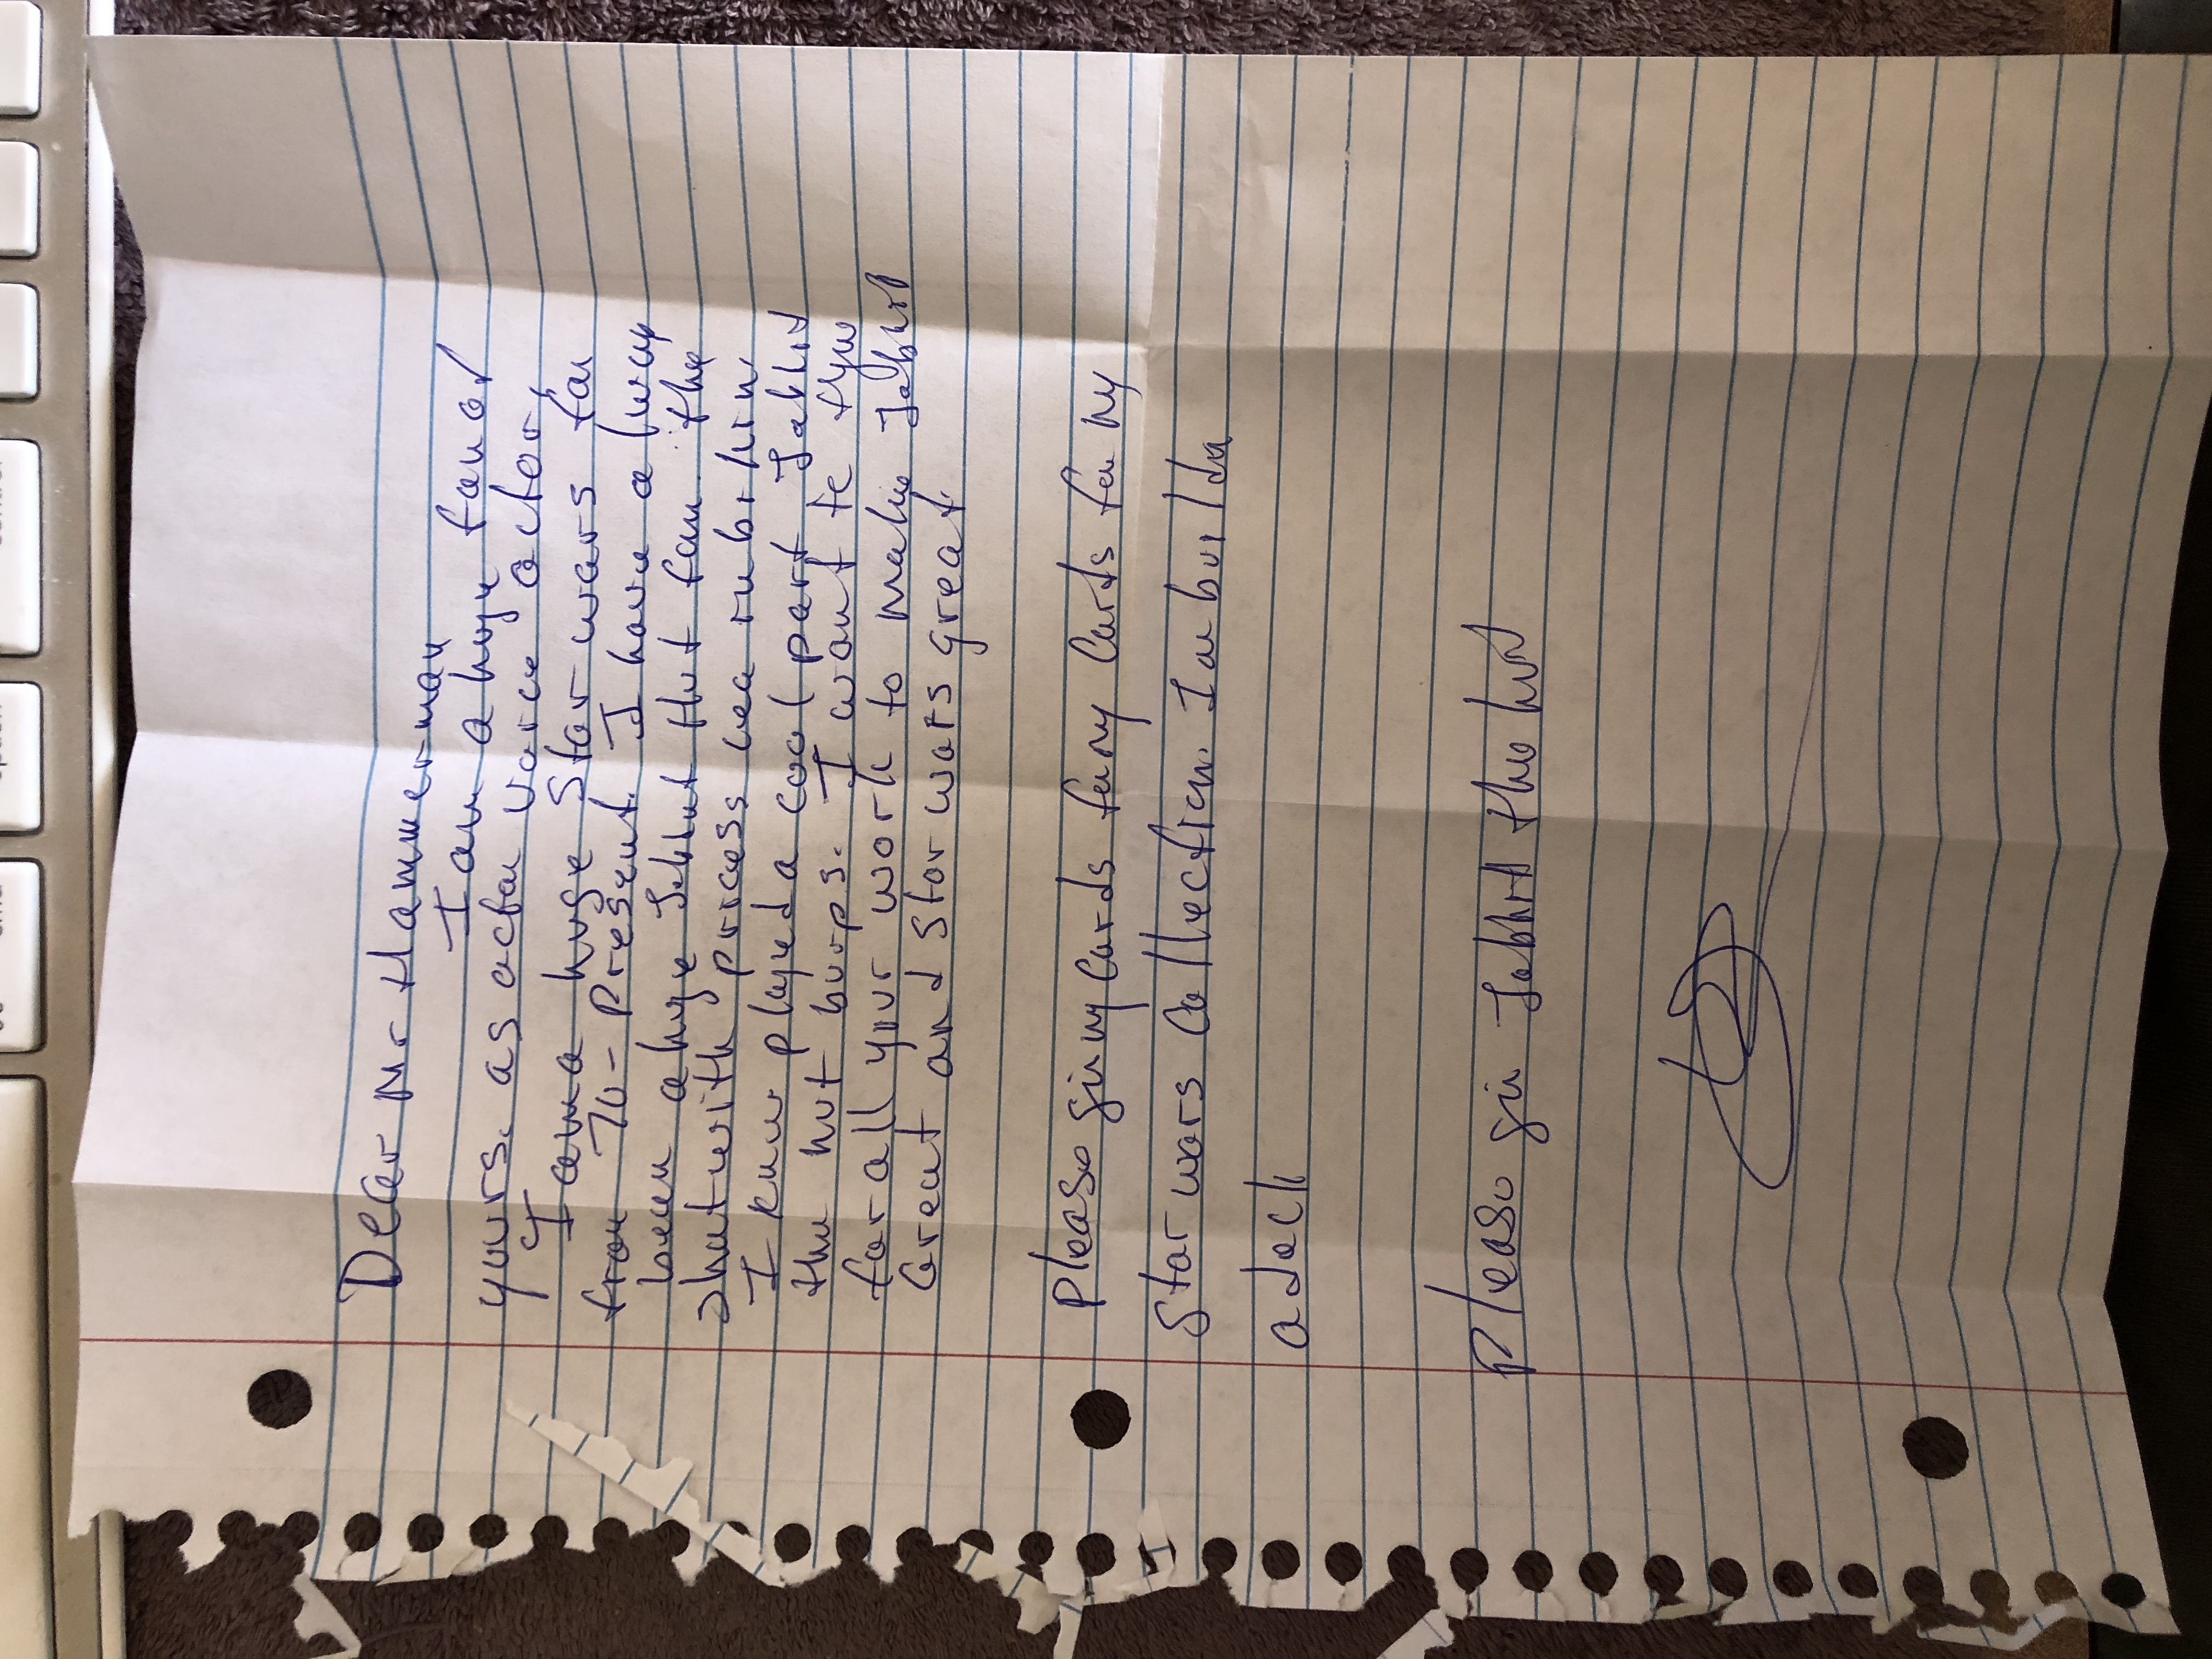 Dear Mr Hammerman
I am a huge fan of
yours. as actor voice actor
I am a huge Star wars fan
from 70- Present. I have always
been a huge Jabbut thut fan the
I knw played a cool part Jabbut
thu hut burps. I want te
for all your work to make Jabut
Great and Star wars great.
Please Sin my Cards for my
Star wars Collection. I am build
a deck
Please sin Jabbut the hut